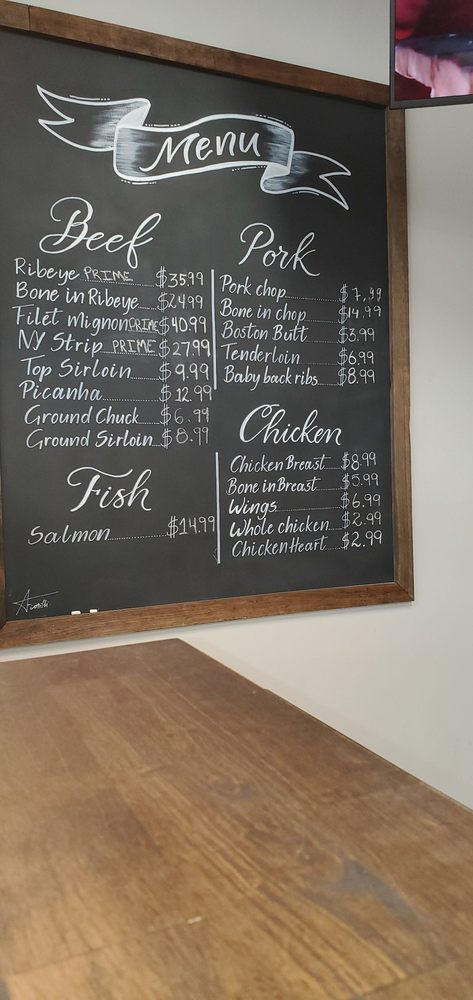 Menu
Beef
Ribeye PRIME $35.99
Bone in Ribeye $24.99
Filet Mignon PRIME $40.99
NY Strip PRIME $27.99
Top Sirloin $9.99
Picanha $12.99
Ground Chuck $6.99
Ground Sirloin $8.99
Fish
Salmon $14.99
Pork
Pork chop $7.99
Bone in chop $14.99
Boston Butt $3.99
Tenderloin $6.99
Baby back ribs $8.99
Chicken
Chicken Breast $8.99
Bone in Breast $5.99
Wings $6.99
Whole chicken $2.99
Chicken Heart $2.99